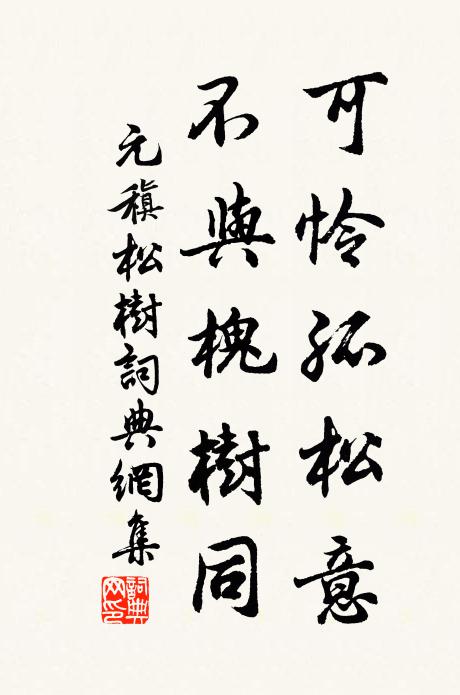 可憐孤松意
不與槐樹同
元稹松樹詞典網集
詞典網印